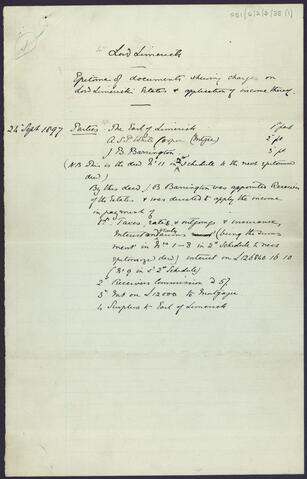 P51/6/2/3/38 (1)
Lord Limerick
Epitome of documents shewing charges on
Lord Limericks Estates & application of income thereof.
24 Sept 1897 Parties The Earl of Limerick 1 part
A S P White Cooper (Mtgee) 2 pt
J B Barrington 3 pt
(NB This is the deed No 11 in 2nd Schedule to the next epitomized
deed)
By this deed J B Barrington was appointed Receiver
of the Estates & was directed to apply the income
in payment of
1st Taxes rates & outgoings & insurance,
Interest on various (being the sums
ment in Nos 1–8 in 2nd Schedule to next
epitomized deed) interest on £126840.16.10
(No 9 in sd 2nd Schedule)
2nd Receivers Commission @ 5%
3rd Int on £12000 to Mortgagee
4 Surplus to Earl of Limerick